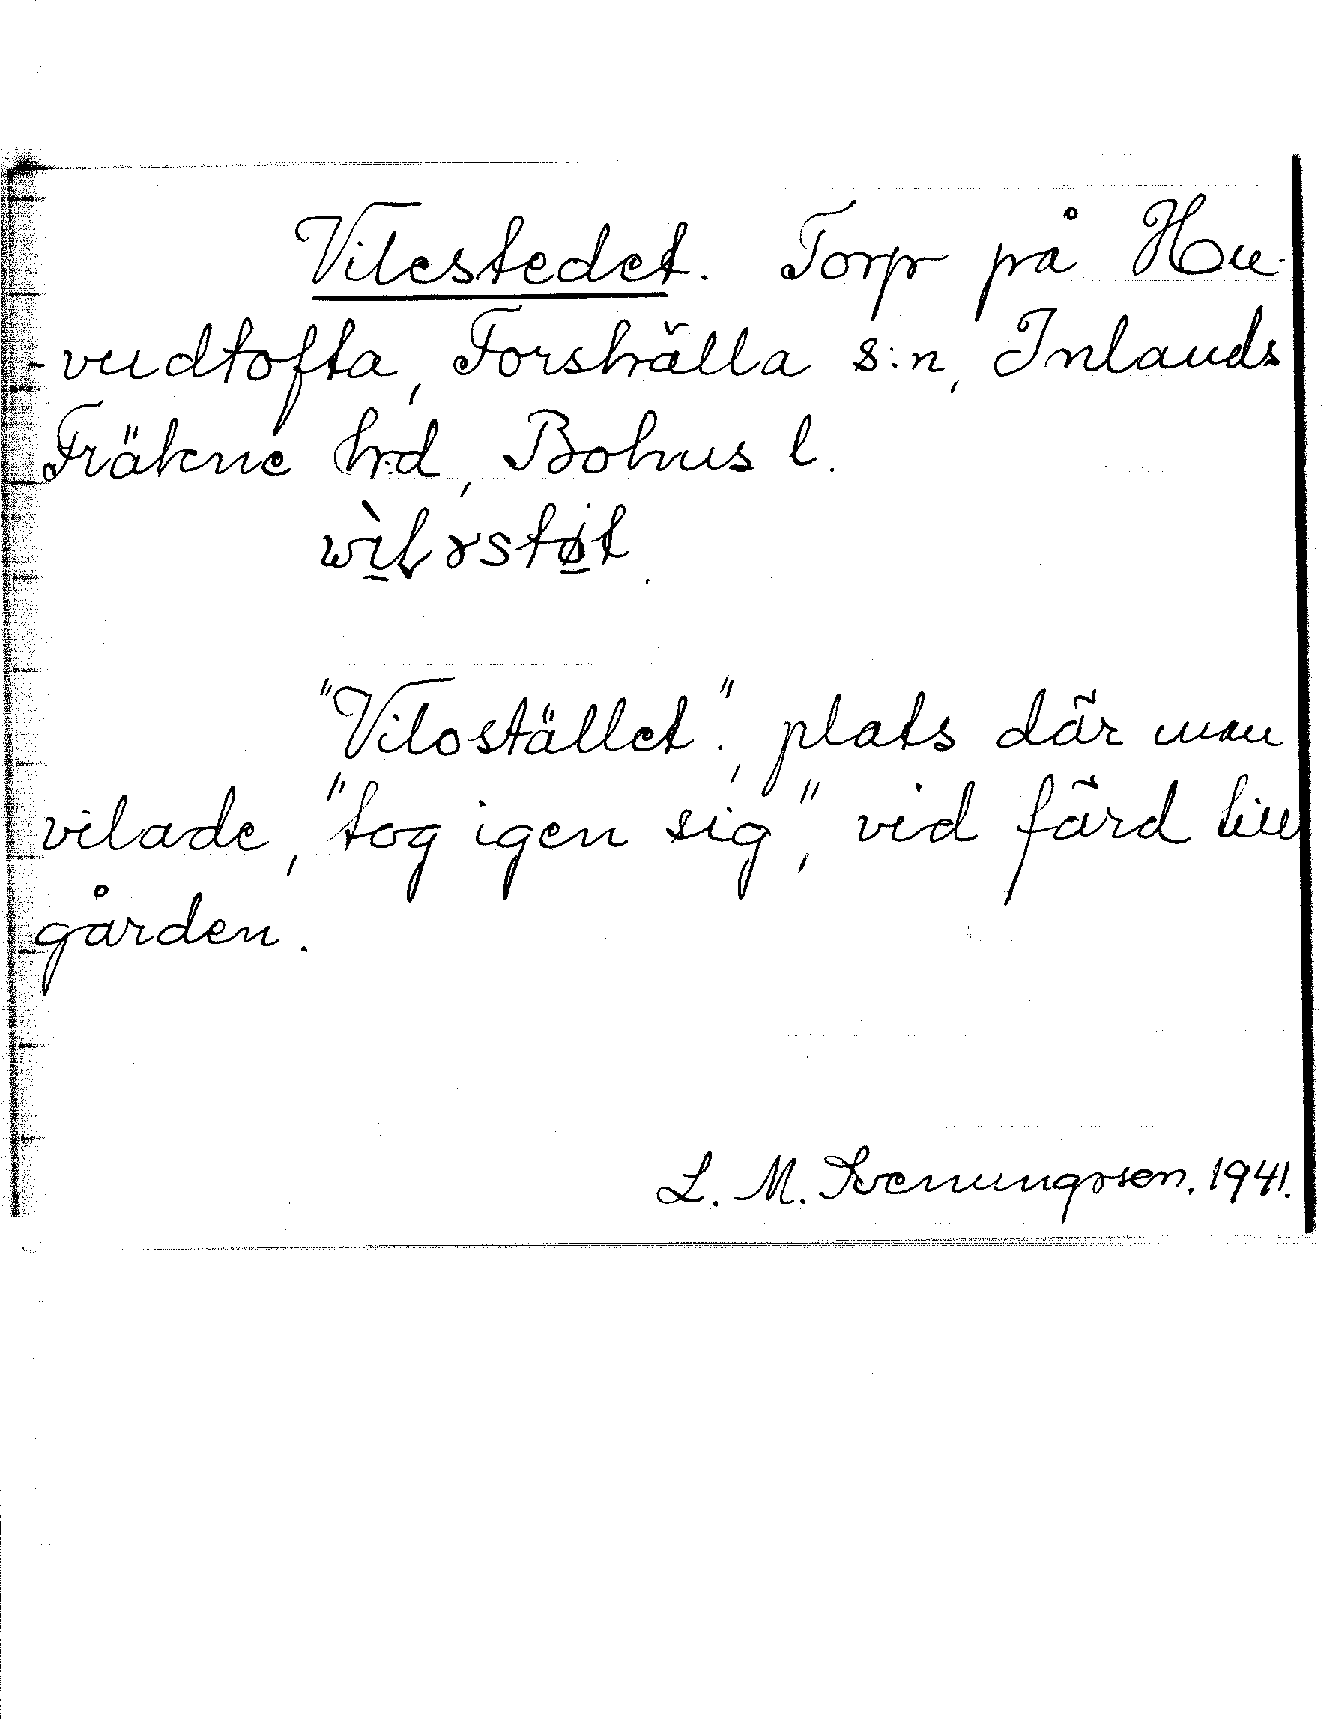 Vilestedet. Torp på Hu-
vudtofta, Forshälla s:n, Inlands
Fräkne hrd, Bohus l.
"Vilostället", plats där man
vilade, "tog igen sig", vid färd till
gården.
L. M. Svenungsson. 1941.